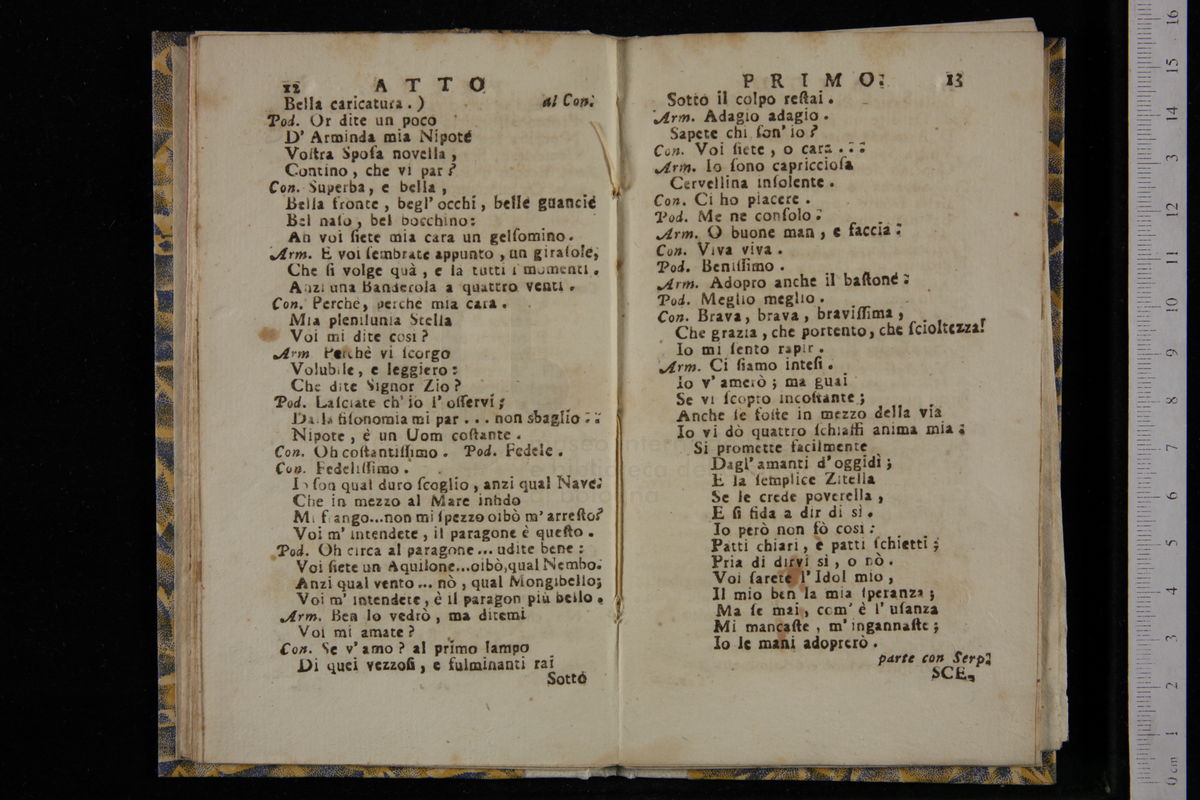 12 ATTO
Bella caricatura. ) al Con.
Pod. Or dite un poco
D' Arminda mia Nipote
Voſtra Spoſa novella,
Contino, che vi par?
Con. Superba, e bella,
Bella fronte, begl' occhi, belle guancie
Bel naſo, bel bocchino:
Ah voi ſiete mia cara un gelſomino.
Arm. E voi ſembrate appunto, un giraſole,
Che ſi volge quà, e là tutti i momenti.
Anzi una Banderola a quattro venti.
Con. Perchè, perchè mia cara.
Mia plenilunia Stella
Voi mi dite così?
Arm Perchè vi ſcorgo
Volubile, e leggiero:
Che dite Signor Zio?
Pod. Laſciate ch' io l' oſſervi;
Dalla fiſonomia mi par... non sbaglio..
Nipote, è un Uom coſtante.
Con. Oh coſtantiſſimo. Pod. Fedele.
Con. Fedeliſſimo.
Io ſon qual duro ſcoglio, anzi qual Nave.
Che in mezzo al Mare infido
Mi frango...non mi ſpezzo oibò m' arreſto?
Voi m' intendete, il paragone è queſto.
Pod. Oh circa al paragone... udite bene:
Voi ſiete un Aquilone...oibò, qual Nembo.
Anzi qual vento... nò, qual Mongibello;
Voi m' intendete, è il paragon più bello.
Arm. Ben lo vedrò, ma ditemi
Voi mi amate?
Con. Se v' amo? al primo lampo
Di quei vezzoſi, e fulminanti rai
Sotto
PRIMO. 13
Sotto il colpo reſtai.
Arm. Adagio adagio.
Sapete chi ſon' io?
Con. Voi ſiete, o cara...
Arm. Io ſono capriccioſa
Cervellina inſolente.
Con. Ci ho piacere.
Pod. Me ne conſolo.
Arm. O buone man, e faccia.
Con. Viva viva.
Pod. Beniſſimo.
Arm. Adopro anche il baſtone.
Pod. Meglio meglio.
Con. Brava, brava, braviſſima,
Che grazia, che portento, che ſcioltezza!
Io mi ſento rapir.
Arm. Ci ſiamo inteſi.
Io v' amerò; ma guai
Se vi ſcopro incoſtante;
Anche ſe foſte in mezzo della via
Io vi dò quattro ſchiaffi anima mia.
Si promette facilmente
Dagl' amanti d' oggidì;
E la ſemplice Zitella
Se le crede poverella,
E ſi fida a dir di sì.
Io però non fò così:
Patti chiari, e patti ſchietti;
Pria di dirvi sì, o nò.
Voi ſarete l' Idol mio,
Il mio ben la mia ſperanza;
Ma ſe mai, com' è l' uſanza
Mi mancaſte, m' ingannaſte;
Io le mani adoprerò.
parte con Serp.
SCE-